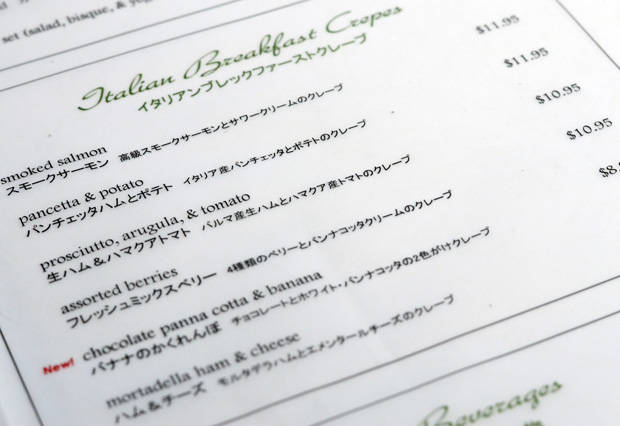 set (salad, bisque, & yog
Italian Breakfast Crepes
イタリアンブレックファーストクレープ
smoked salmon $11.95
スモークサーモン 高級スモークサーモンとサワークリームのクレープ
pancetta & potato $11.95
パンチェッタハムとポテト イタリア産パンチェッタとポテトのクレープ
prosciutto, arugula, & tomato $10.95
生ハム&ハマクアトマト パルマ産生ハムとハマクア産トマトのクレープ
assorted berries $10.95
フレッシュミックスベリー 4種類のベリーとパンナコッタクリームのクレープ
New! chocolate panna cotta & banana $8.
バナナのかくれんぼ チョコレートとホワイト・パンナコッタの2色がけクレープ
mortadella ham & cheese
ハム&チーズ モルタデラハムとエメンタールチーズのクレープ
Beverages